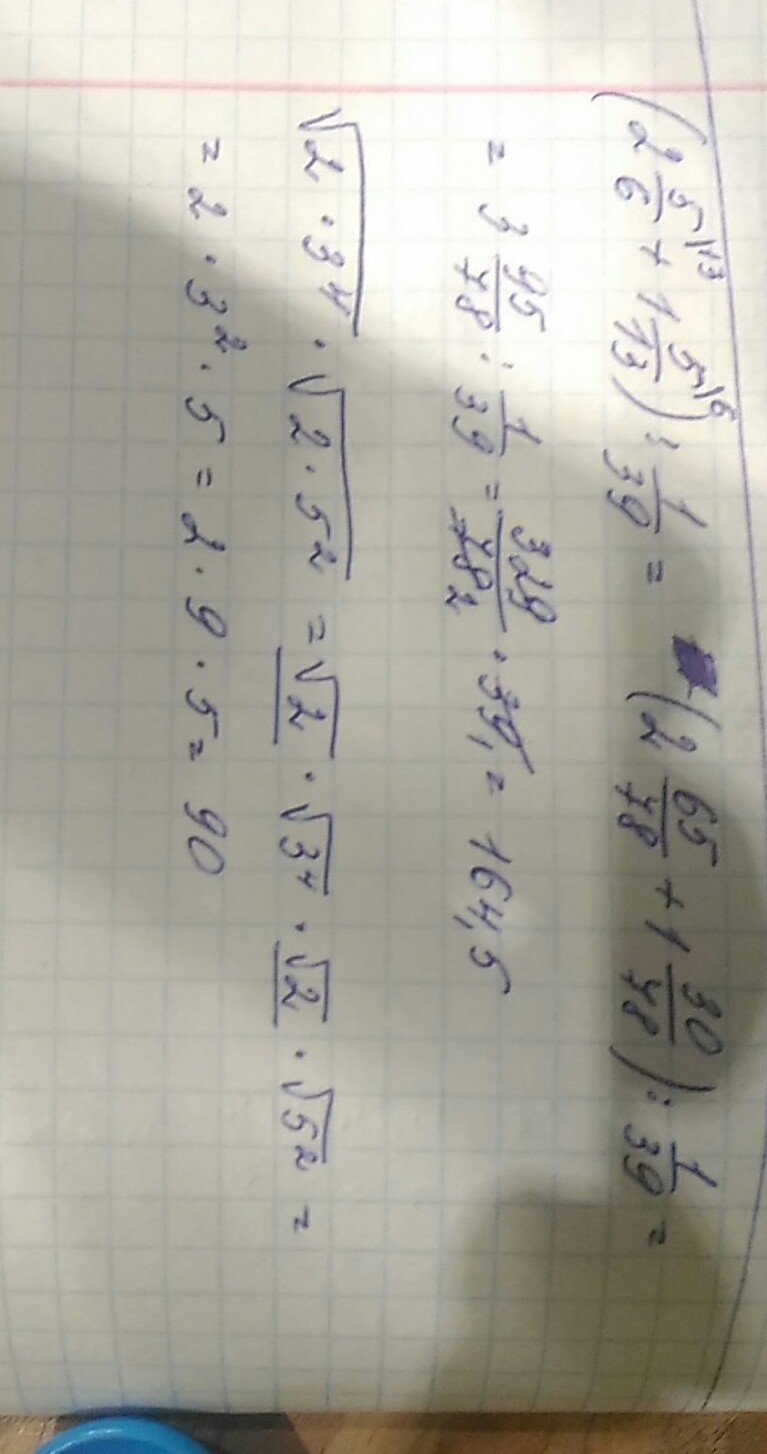 (2 5\13/6 + 1 5\6/13) : 1/39 = (2 65/78 + 1 30/78) : 1/39 =
= 3 95/78 : 1/39 = 329/78₂ · 39₁ = 164,5
√(2 · 3⁴) · √(2 · 5²) = √2 · √3⁴ · √2 · √5² =
= 2 · 3² · 5 = 2 · 9 · 5 = 90